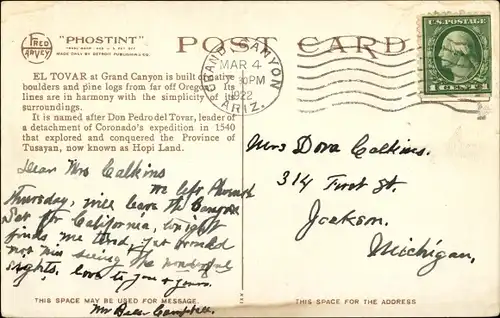 FRED HARVEY
"PHOSTINT"
MADE ONLY BY DETROIT PUBLISHING CO.
POST CARD
EL TOVAR at Grand Canyon is built of native
boulders and pine logs from far off Oregon. Its
lines are in harmony with the simplicity of its
surroundings.
It is named after Don Pedro del Tovar, leader of
a detachment of Coronado's expedition in 1540
that explored and conquered the Province of
Tusayan, now known as Hopi Land.
GRAND CANYON
MAR 4
30PM
1922
ARIZ.
U.S. POSTAGE
1 CENT 1
Dear Mrs Calkins
We left Phoenix
Thursday, will leave the Canyon
Sat for California, tonight
finds me tired, but would
not miss seeing the wonderful
sights. love to you & yours.
Mrs Campbell.
Mrs Dora Calkins.
314 First St.
Jackson.
Michigan.
THIS SPACE MAY BE USED FOR MESSAGE.
THIS SPACE IS FOR THE ADDRESS